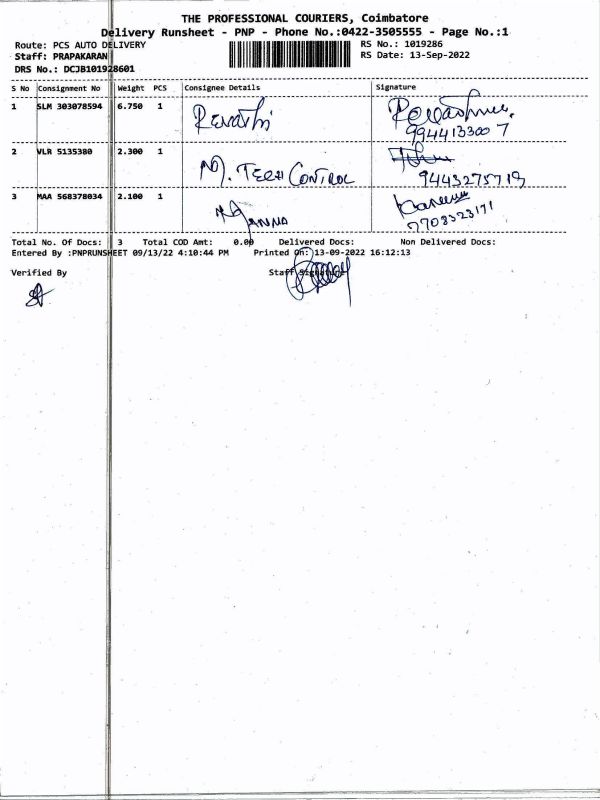 THE PROFESSIONAL COURIERS, Coimbatore
Delivery Runsheet - PNP - Phone No.:0422-3505555 - Page No.:1
Route: PCS AUTO DELIVERY RS No.: 1019286
Staff: PRAPAKARAN RS Date: 13-Sep-2022
DRS No.: DCJB101928601
S No Consignment No Weight PCS Consignee Details Signature
1 SLM 303078594 6.750 1 Revathi
9944133007
2 VLR 5135380 2.300 1 M. TECH CONTROL
9443275719
3 MAA 568378034 2.100 1
7708323171
Total No. Of Docs: 3 Total COD Amt: 0.00 Delivered Docs: Non Delivered Docs:
Entered By :PNPRUNSHEET 09/13/22 4:10:44 PM Printed On: 13-09-2022 16:12:13
Verified By Staff Signature